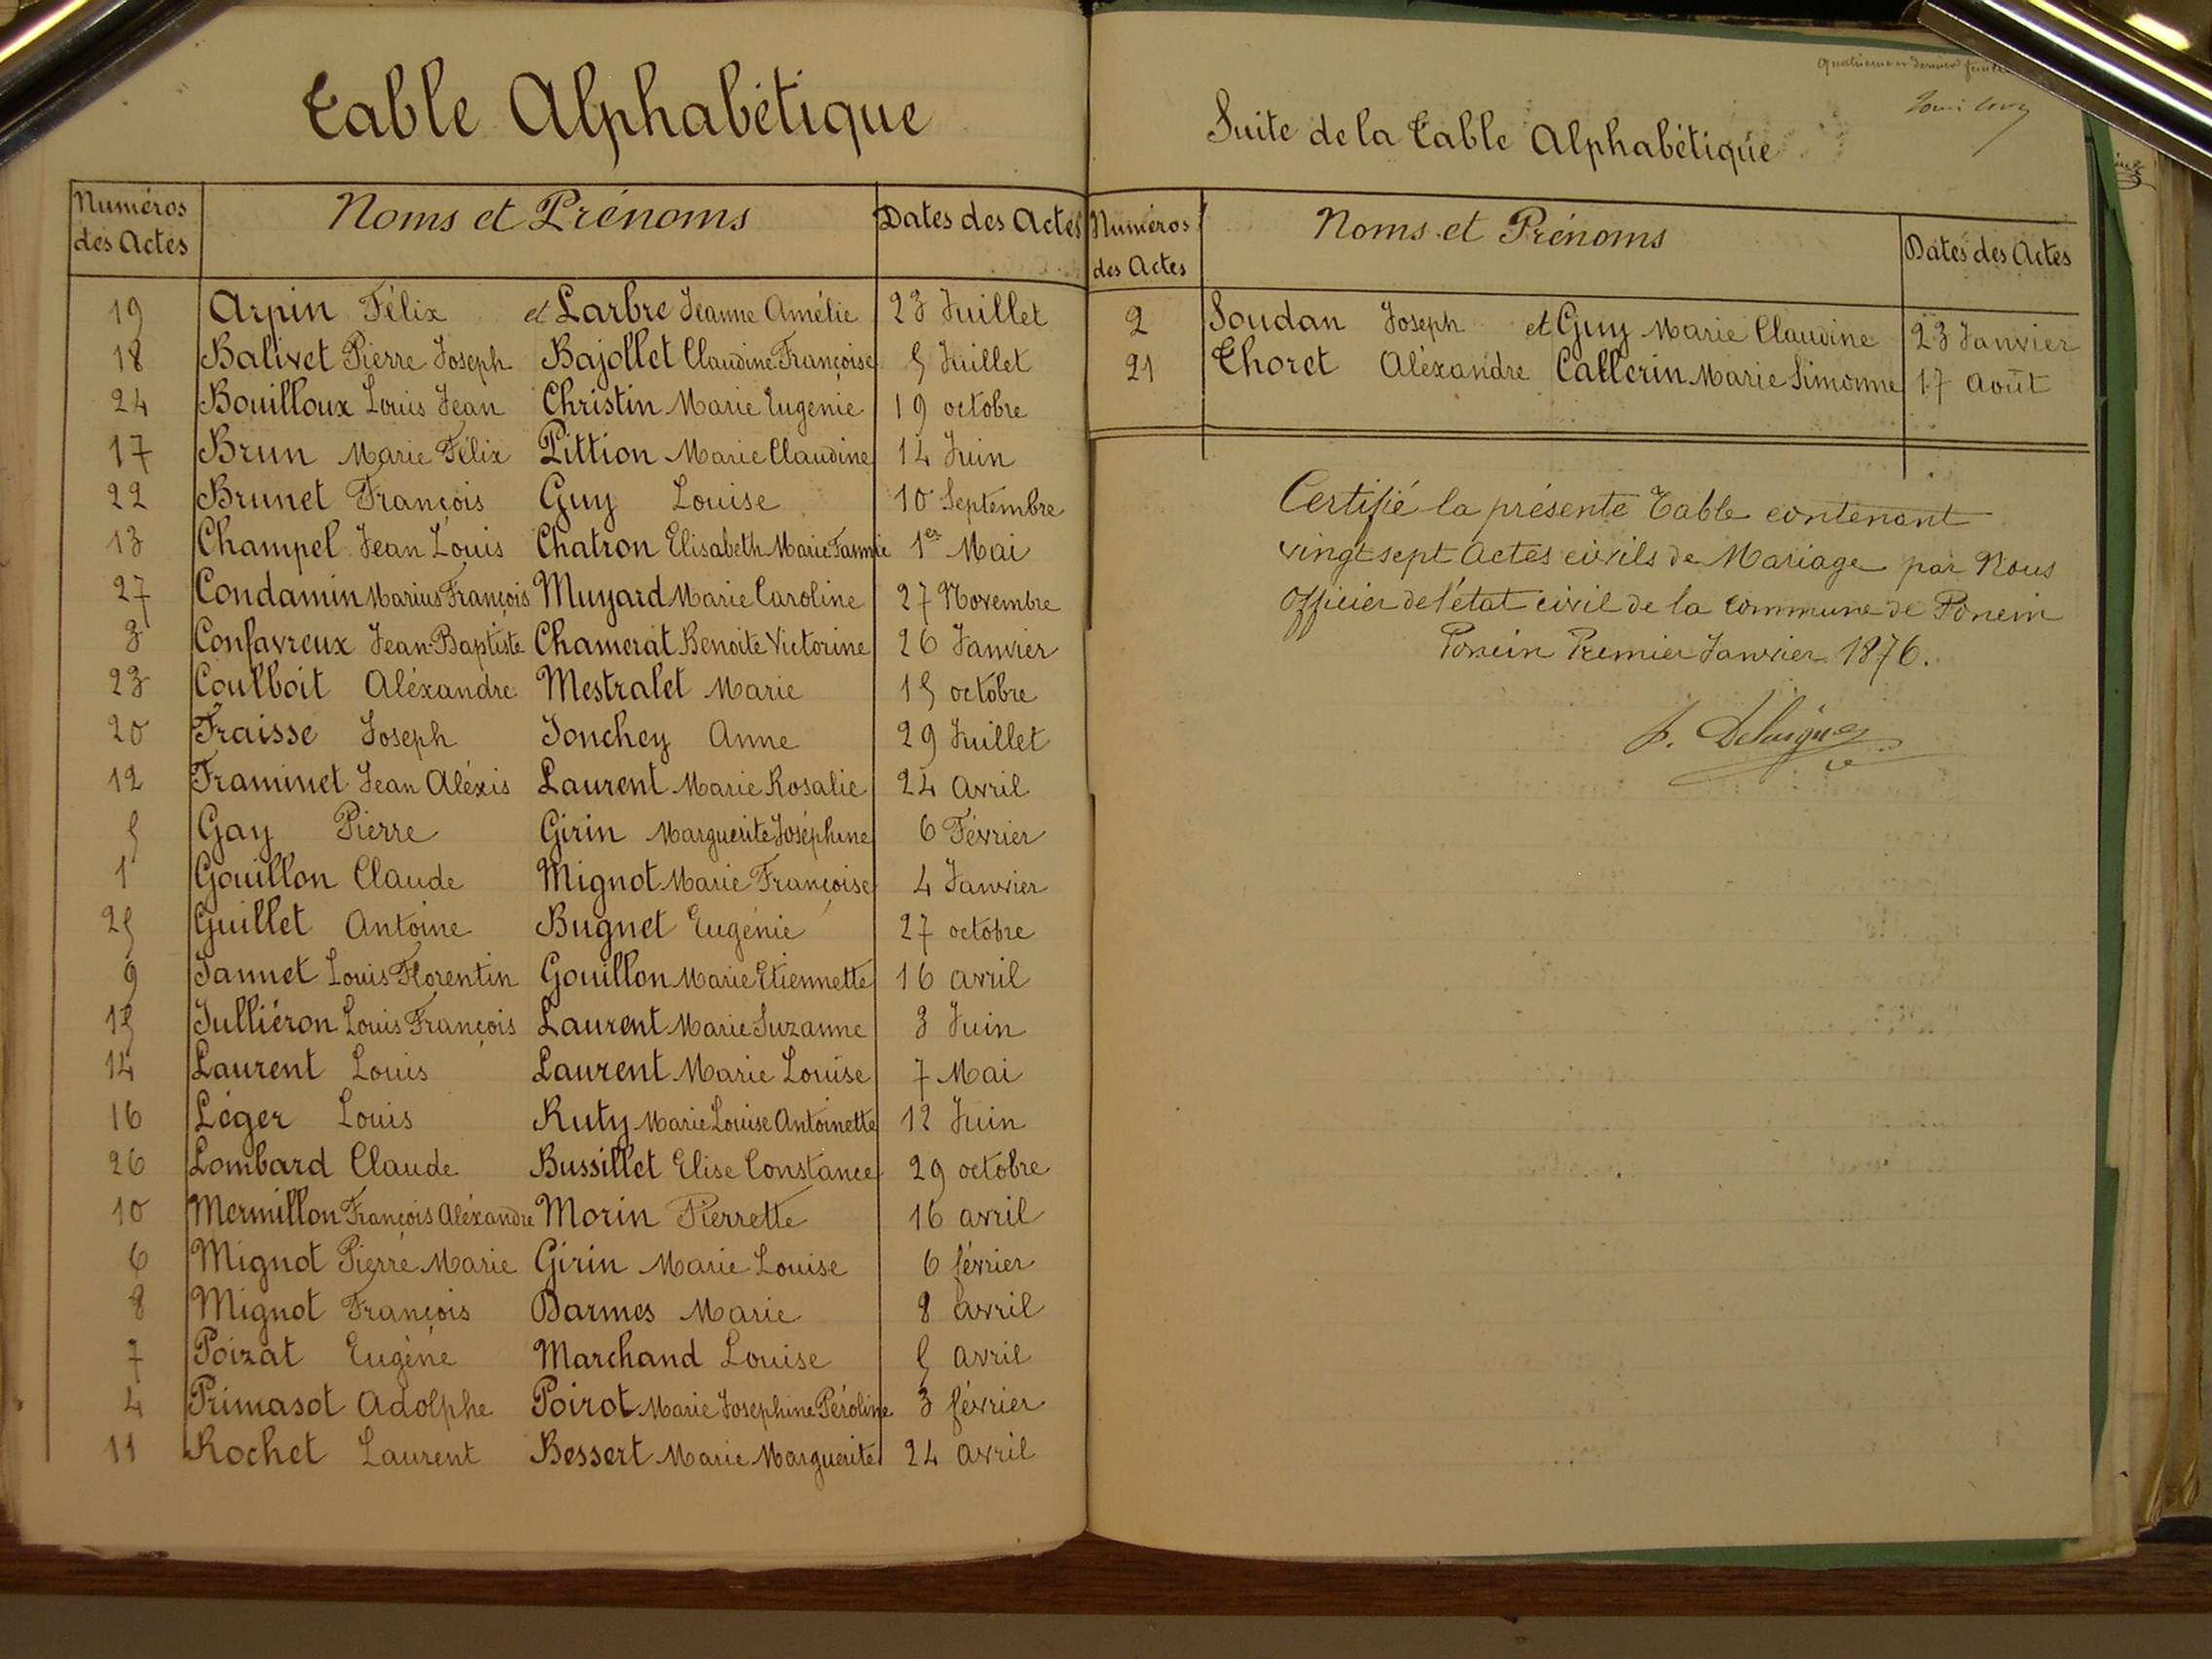 Table Alphabétique
Numéros des Actes Noms et Prénoms Dates des Actes
19 Arpin Félix et Larbre Jeanne Amélie 23 Juillet
18 Balivet Pierre Joseph Bajollet Claudine Françoise 5 Juillet
24 Bouilloux Louis Jean Christin Marie Eugenie 19 octobre
17 Brun Marie Félix Pittion Marie Claudine 14 Juin
22 Brunet François Guy Louise 10 Septembre
13 Champel Jean Louis Chatron Elisabeth Marie Fannie 1er Mai
27 Condamin Marius François Muyard Marie Caroline 27 Novembre
3 Confavreux Jean-Baptiste Chamerat Benoite Victorine 26 Janvier
23 Coulboit Aléxandre Mestralet Marie 15 octobre
20 Fraisse Joseph Jonchey Anne 29 Juillet
12 Framinet Jean Aléxis Laurent Marie Rosalie 24 avril
5 Gay Pierre Girin Marguerite Joséphine 6 Février
1 Gouillon Claude Mignot Marie Françoise 4 Janvier
25 Guillet Antoine Bugnet Eugénie 27 octobre
9 Jannet Louis Florentin Gouillon Marie Etiennette 16 avril
15 Julliéron Louis François Laurent Marie Suzanne 3 Juin
14 Laurent Louis Laurent Marie Louise 7 Mai
16 Léger Louis Ruty Marie Louise Antoinette 12 Juin
26 Lombard Claude Bussillet Elise Constance 29 octobre
10 Mermillon François Aléxandre Morin Pierrette 16 avril
6 Mignot Pierre Marie Girin Marie Louise 6 février
8 Mignot François Darmes Marie 8 avril
7 Poizat Eugène Marchand Louise 5 avril
4 Primasot Adolphe Poirot Marie Josephine Péroline 3 février
11 Rochet Laurent Bessert Marie Marguerite 24 avril
Suite de la Table Alphabétique
Numéros des Actes Noms et Prénoms Dates des Actes
2 Soudan Joseph et Guy Marie Claudine 23 Janvier
21 Thoret Aléxandre Callerin Marie Simonne 17 Août
Certifié la présente Table contenant
vingt sept actes civils de Mariage par Nous
Officier de l'état civil de la commune de Poncin
Poncin Premier Janvier 1876.